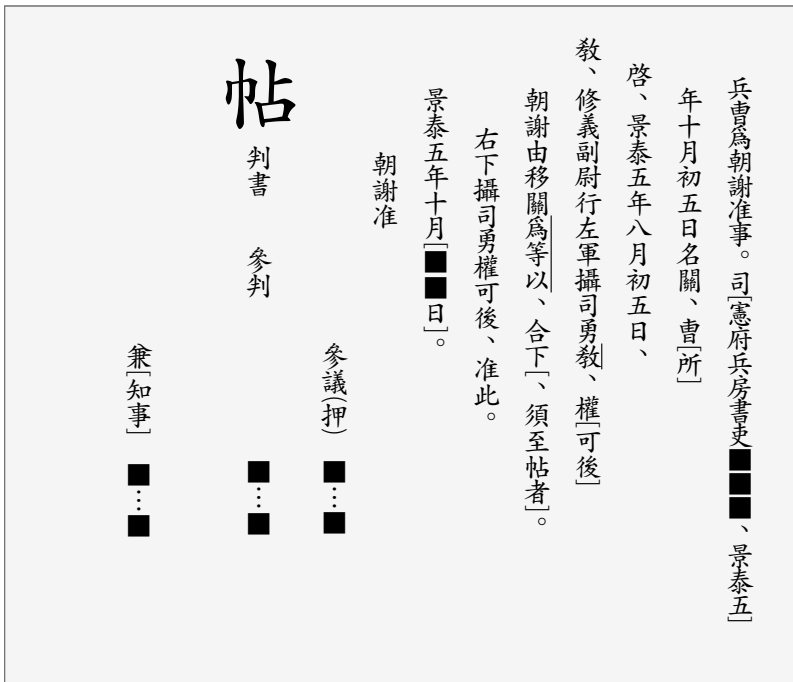 兵曺爲朝謝准事。司[憲府兵房書吏■■■、景泰五]
年十月初五日名關、曺[所]
啓、景泰五年八月初五日、
敎、修義副尉行左軍攝司勇敎、權[可後]
朝謝由移關爲等以、合下[、須至帖者]。
右下攝司勇權可後、准此。
景泰五年十月[■■日]。
朝謝准
參議(押) ■…■
帖 判書 參判 ■…■
兼[知事] ■…■